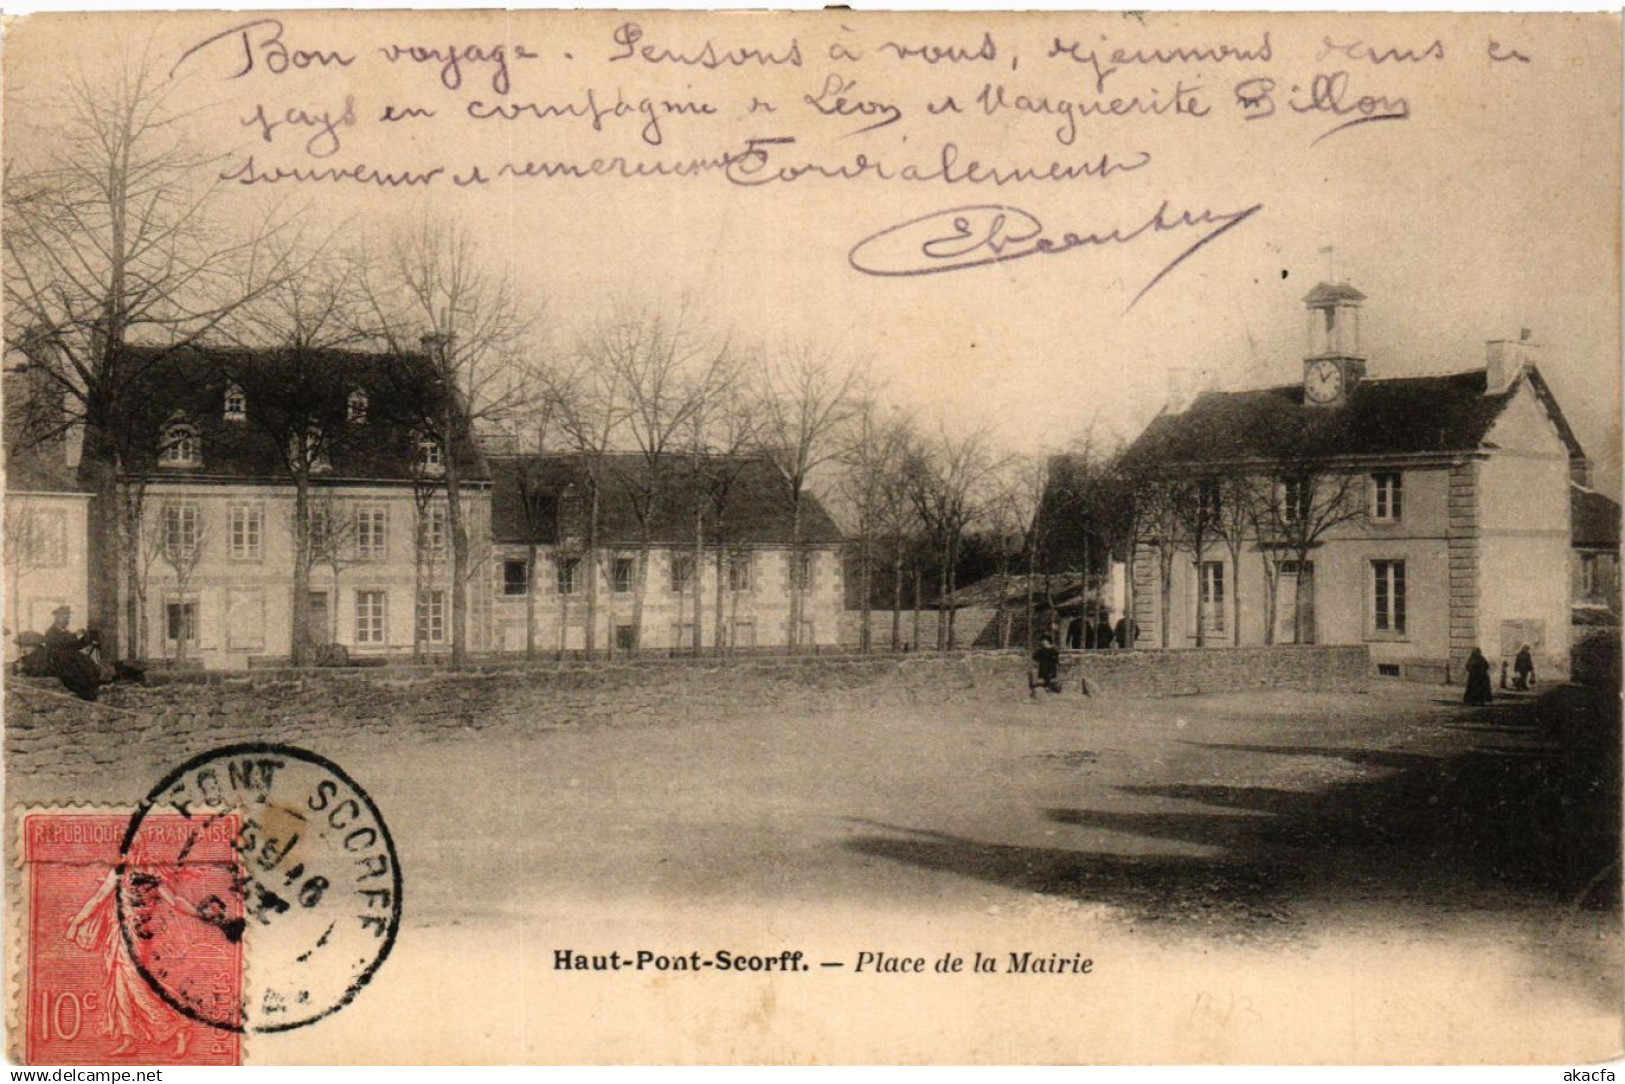 Bon voyage. Pensons à vous, dejeunons dans ce
pays en compagnie de Léon et Marguerite Billon
souvenir et remerciements Cordialement
PONT SCORFF
04
REPUBLIQUE FRANÇAISE
10c
POSTES
Haut-Pont-Scorff. — Place de la Mairie
delcampe.net
akacfa